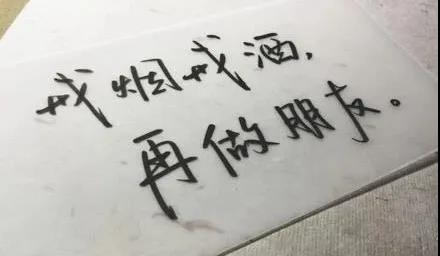 戒烟戒酒,
再做朋友。